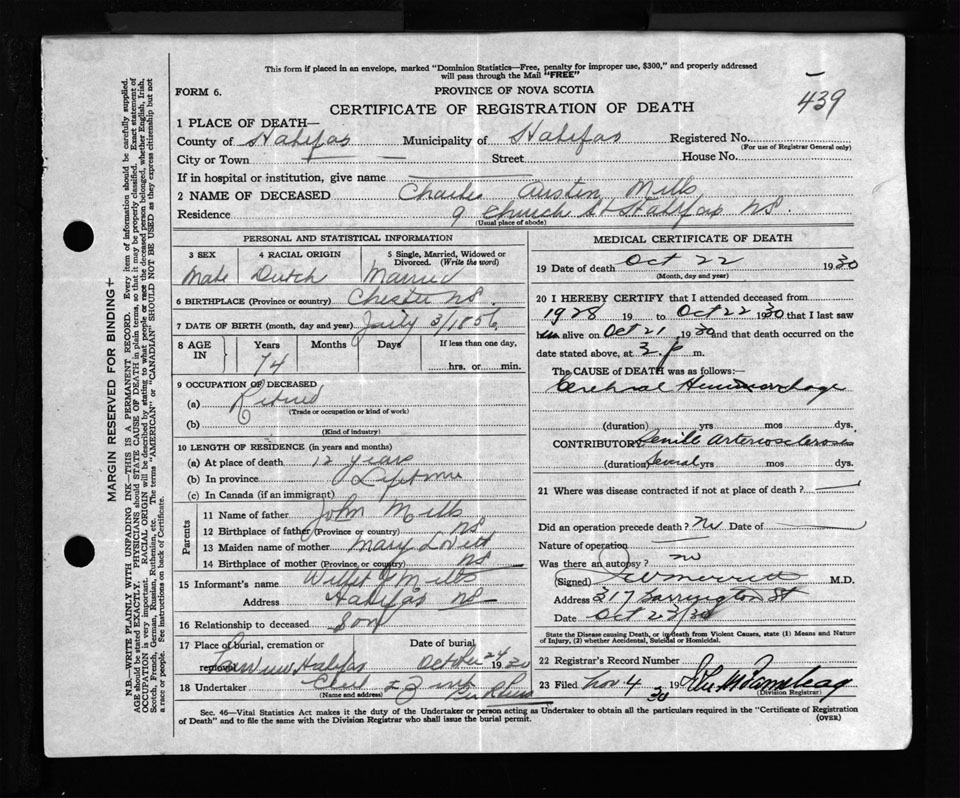 This form if placed in an envelope, marked "Dominion Statistics—Free, penalty for improper use, $300," and properly addressed
will pass through the Mail "FREE"
FORM 6.
PROVINCE OF NOVA SCOTIA
439
CERTIFICATE OF REGISTRATION OF DEATH
1 PLACE OF DEATH—
County of Halifax Municipality of Halifax Registered No.
(For use of Registrar General only)
City or Town Street House No.
If in hospital or institution, give name
2 NAME OF DECEASED Charles Austin Mills
Residence 9 Church St Halifax NS.
(Usual place of abode)
PERSONAL AND STATISTICAL INFORMATION
3 SEX 4 RACIAL ORIGIN 5 Single, Married, Widowed or Divorced. (Write the word)
Male Dutch Married
6 BIRTHPLACE (Province or country) Chester NS.
7 DATE OF BIRTH (month, day and year) July 3/1856
8 AGE IN Years Months Days If less than one day,
74 hrs. or min.
9 OCCUPATION OF DECEASED
(a) Retired
(Trade or occupation or kind of work)
(b)
(Kind of industry)
10 LENGTH OF RESIDENCE (in years and months)
(a) At place of death 12 years
(b) In province Lifetime
(c) In Canada (if an immigrant)
Parents
11 Name of father John Mills
12 Birthplace of father (Province or country) NS
13 Maiden name of mother Mary Lovett
14 Birthplace of mother (Province, or country) NS
15 Informant's name J Mills
Address Halifax NS
16 Relationship to deceased Son
17 Place of Burial, cremation or removal Halifax
Date of burial October 24 1930
18 Undertaker
(Name and address)
MEDICAL CERTIFICATE OF DEATH
19 Date of death Oct 22 1930
(Month, day and year)
20 I HEREBY CERTIFY that I attended deceased from
1928 19 to Oct 22 1930 that I last saw
alive on Oct 21 1930 and that death occurred on the
date stated above, at 2 p m.
The CAUSE of DEATH was as follows:—
Cerebral Hemmorhage
(duration) yrs mos dys.
CONTRIBUTORY Senile Arteriosclerosis
(duration) Several yrs mos dys.
21 Where was disease contracted if not at place of death?
Did an operation precede death? No Date of
Nature of operation
Was there an autopsy? no
(Signed) Merritt M.D.
Address 317 Barrington St
Date Oct 23/30
State the Disease causing Death, or in death from Violent Causes, state (1) Means and Nature
of Injury, (2) whether Accidental, Suicidal or Homicidal.
22 Registrar's Record Number
23 Filed Nov 4 1930
(Division Registrar)
Sec. 46—Vital Statistics Act makes it the duty of the Undertaker or person acting as Undertaker to obtain all the particulars required in the "Certificate of Registration
of Death" and to file the same with the Division Registrar who shall issue the burial permit.
(OVER)
MARGIN RESERVED FOR BINDING
N.B.—WRITE PLAINLY WITH UNFADING INK—THIS IS A PERMANENT RECORD. Every item of information should be carefully supplied.
AGE should be stated EXACTLY. PHYSICIANS should STATE CAUSE OF DEATH in plain terms, so that it may be properly classified. Exact statement of
OCCUPATION is very important. RACIAL ORIGIN will be described by stating to what people or race the deceased person belonged, whether English, Irish,
Scotch, French, German, Russian, Ruthenian, etc. The terms "AMERICAN" or "CANADIAN" SHOULD NOT BE USED as they express citizenship but not
a race or people. See instructions on back of Certificate.